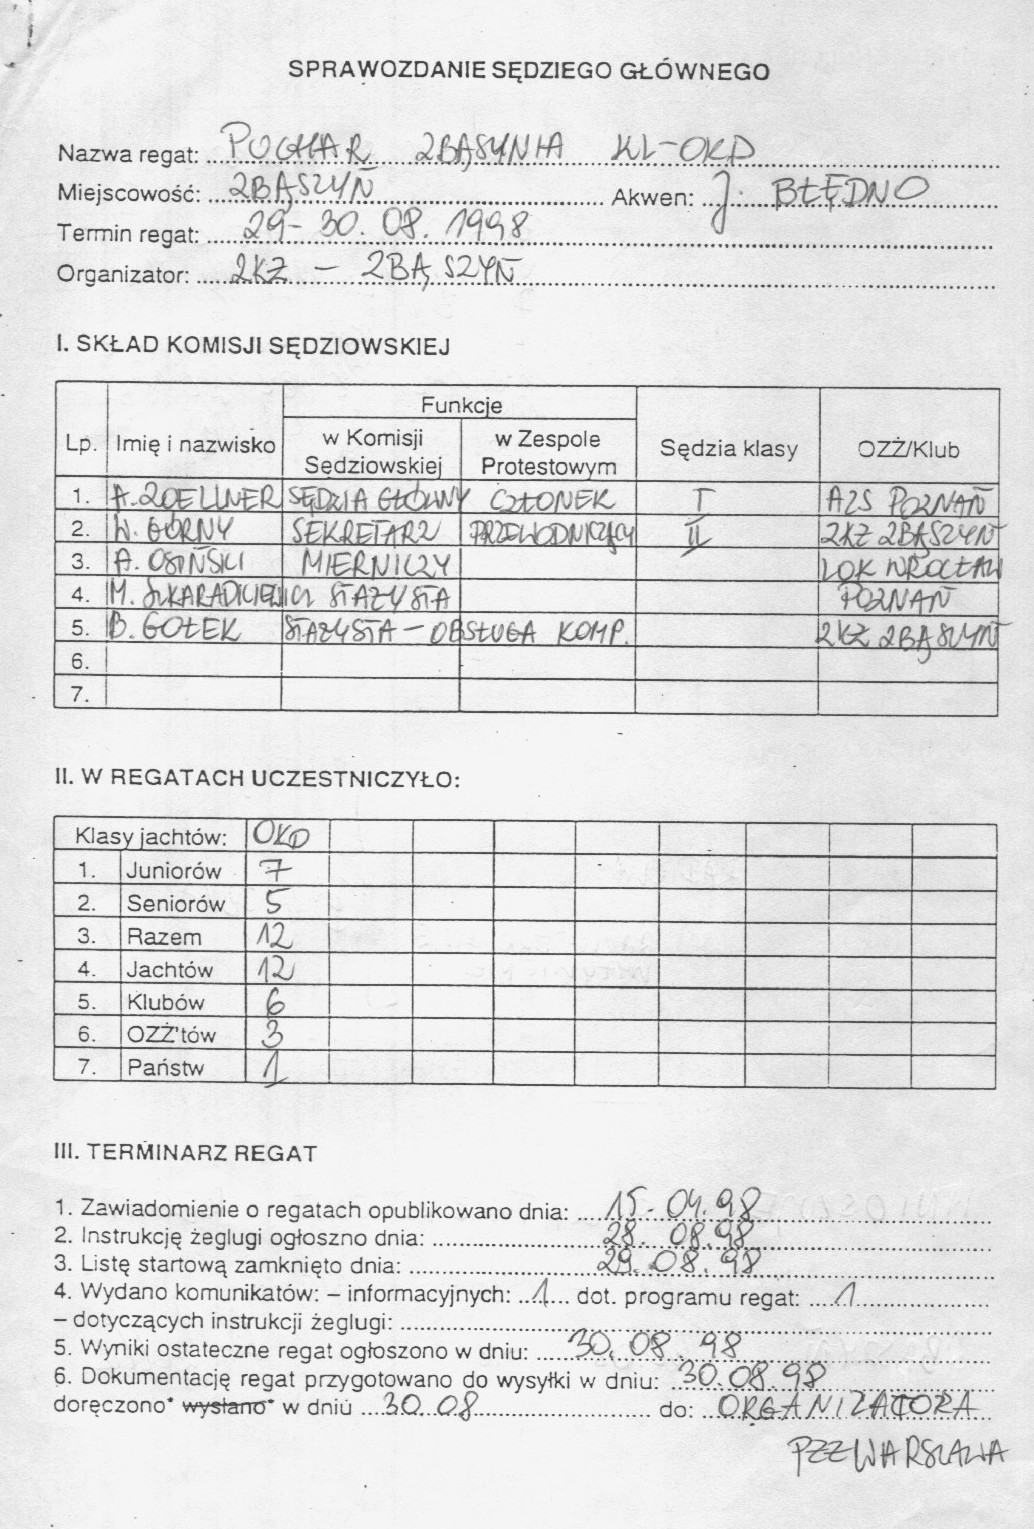 SPRAWOZDANIE SĘDZIEGO GŁÓWNEGO
Nazwa regat: PUCHAR ZBĄSZYNIA KL-OKD
Miejscowość: ZBĄSZYŃ Akwen: J. BŁĘDNO
Termin regat: 29-30. 08. 1998
Organizator: ZKŻ - ZBĄSZYŃ
I. SKŁAD KOMISJI SĘDZIOWSKIEJ
Funkcje
Lp. Imię i nazwisko w Komisji Sędziowskiej w Zespole Protestowym Sędzia klasy OZŻ/Klub
1. A. ZOELLNER SĘDZIA GŁÓWNY CZŁONEK I AZS POZNAŃ
2. W. GÓRNY SEKRETARZ PRZEWODNICZĄCY II ZKŻ ZBĄSZYŃ
3. A. OSIŃSKI MIERNICZY LOK WROCŁAW
4. M. STAŻYSTA POZNAŃ
5. B. GOŁEK STAŻYSTA - OBSŁUGA KOMP. ZKŻ ZBĄSZYŃ
6.
7.
II. W REGATACH UCZESTNICZYŁO:
Klasy jachtów: OKD
1. Juniorów 7
2. Seniorów 5
3. Razem 12
4. Jachtów 12
5. Klubów 6
6. OZŻ'tów 3
7. Państw 1
III. TERMINARZ REGAT
1. Zawiadomienie o regatach opublikowano dnia: 15. 04. 98
2. Instrukcję żeglugi ogłoszno dnia: 28. 08. 98
3. Listę startową zamknięto dnia: 29. 08. 98
4. Wydano komunikatów: – informacyjnych: 1 dot. programu regat: 1
– dotyczących instrukcji żeglugi:
5. Wyniki ostateczne regat ogłoszono w dniu: 30. 08. 98
6. Dokumentację regat przygotowano do wysyłki w dniu: 30. 08. 98
doręczono* wysłano* w dniu 30. 08 do: ORGANIZATORA
PZŻ WARSZAWA